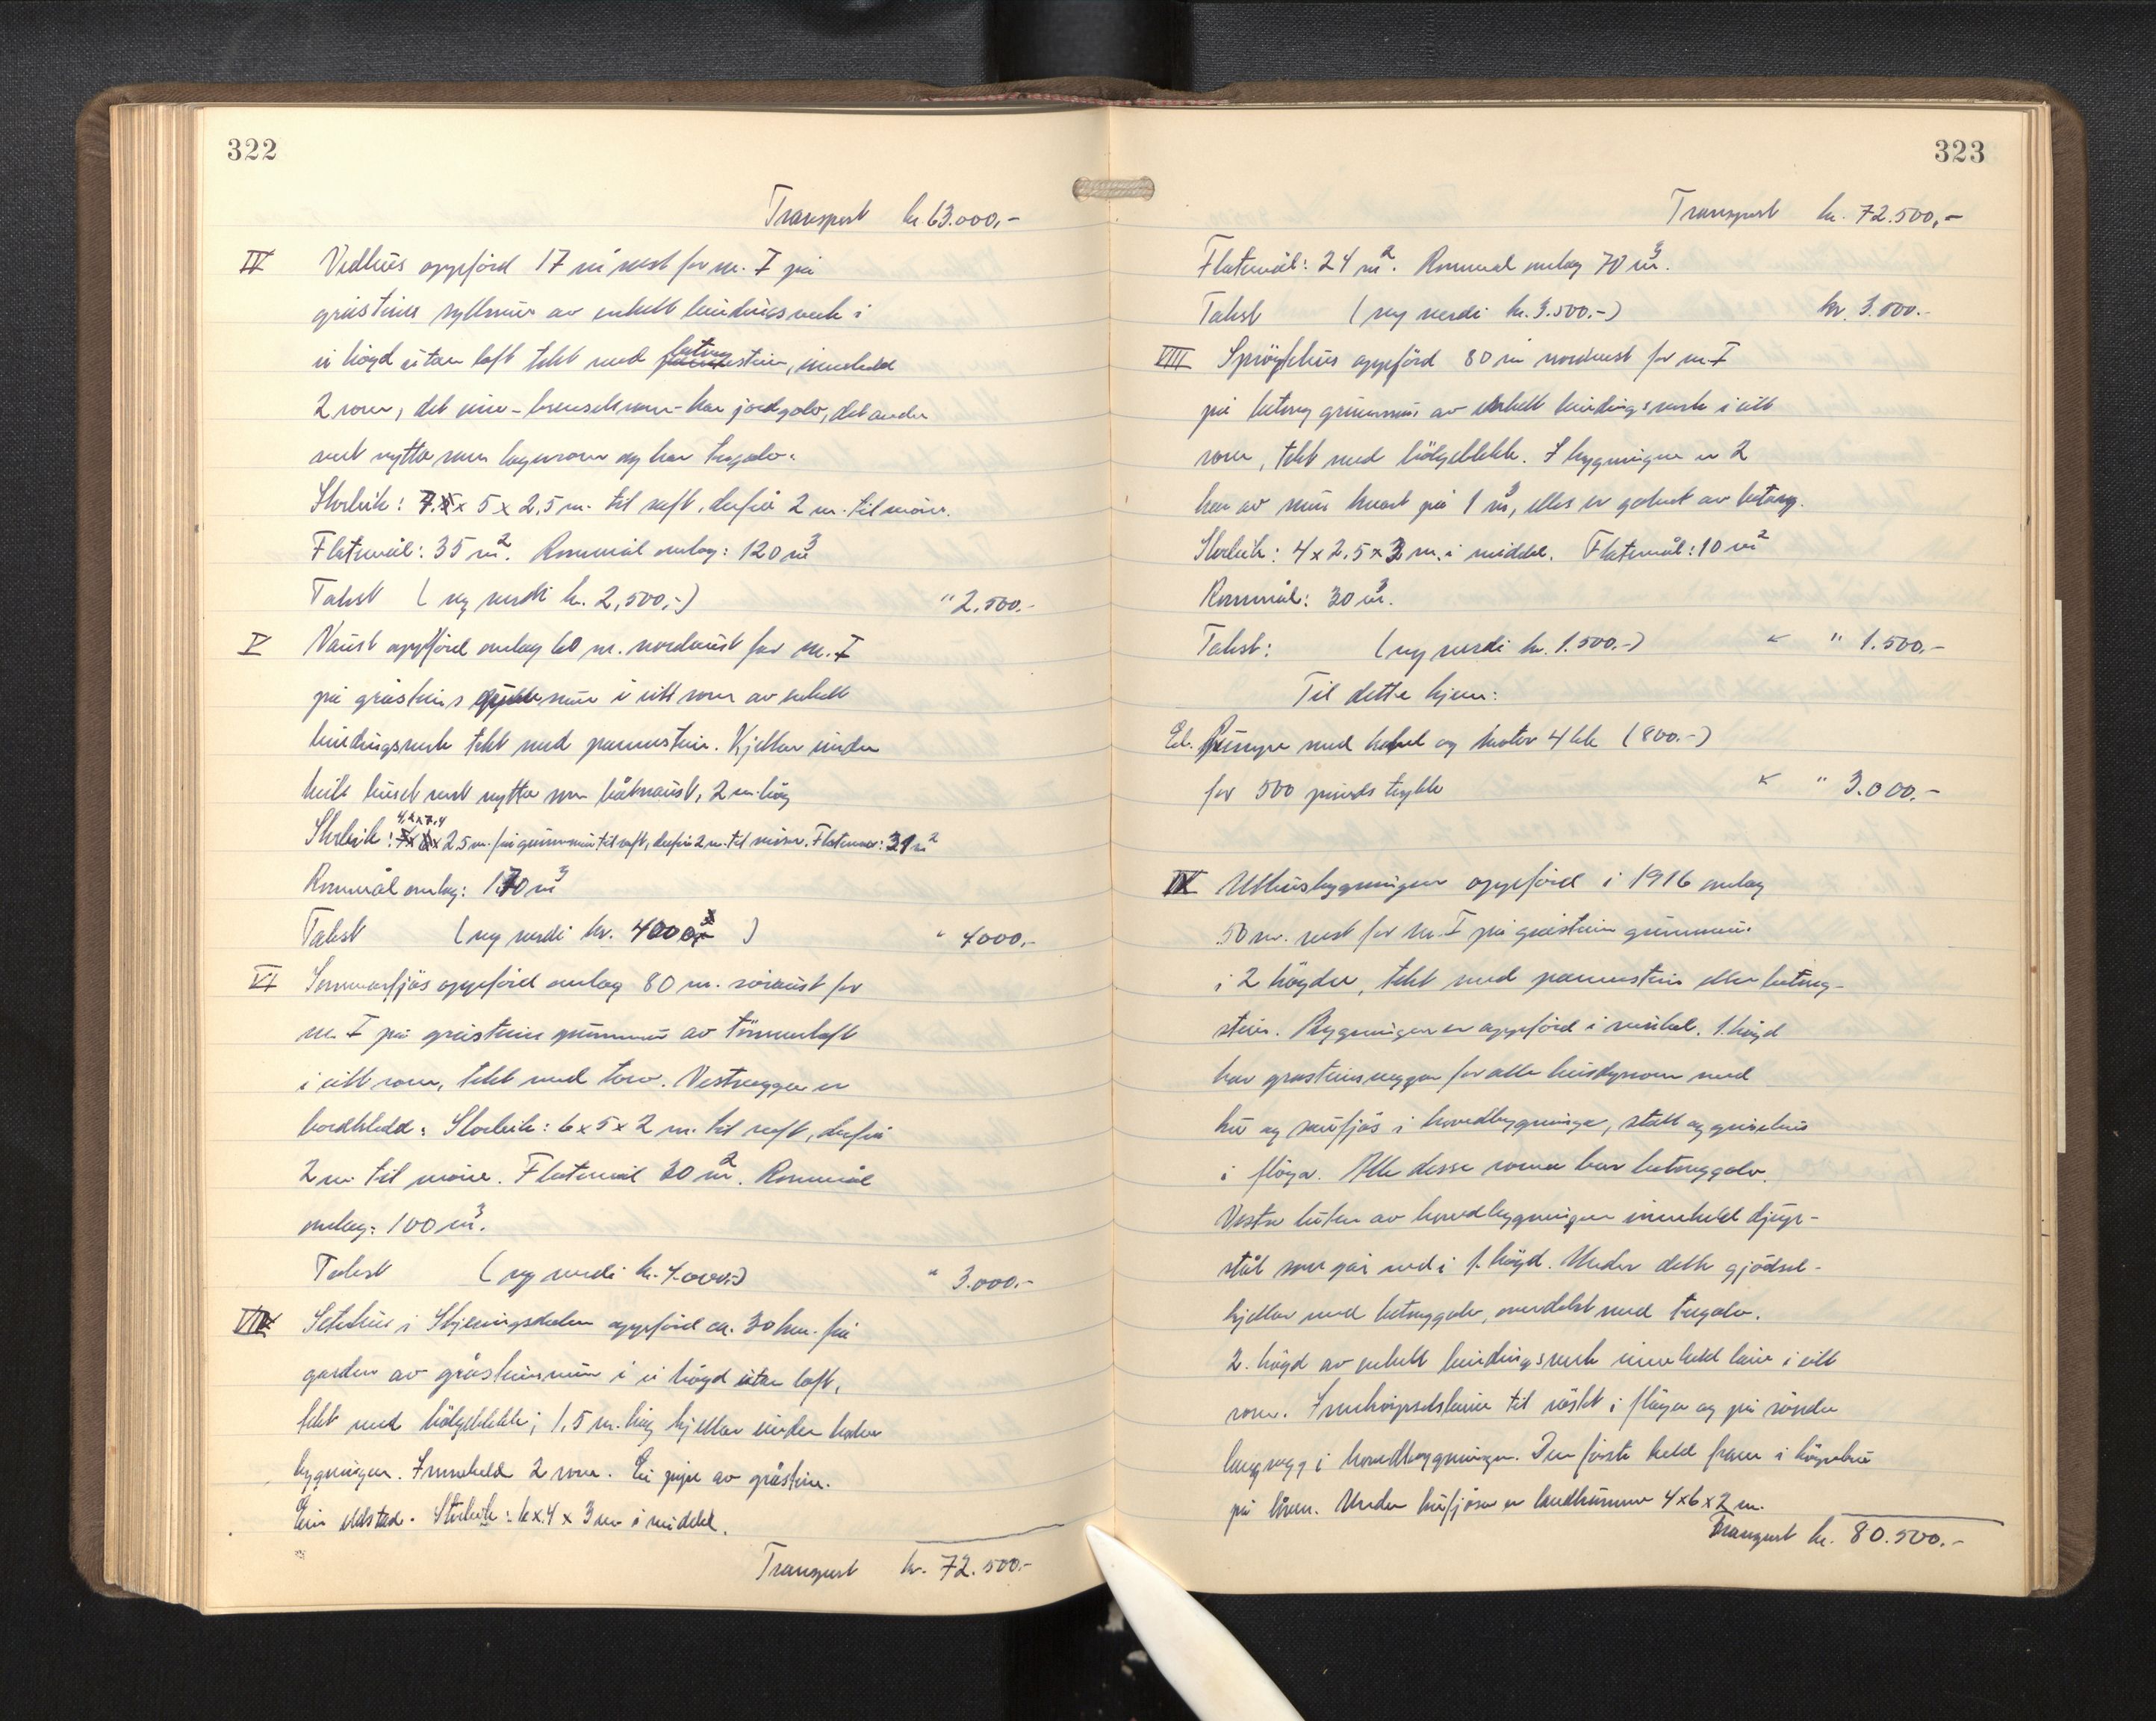 322
Transport kr. 63.000,-
IV Vedhus oppförd 17 m vest for nr. I på
gråsteins syllmur av enkelt bindingsverk i
ei högd utan loft tekt med betong stein, inneheld
2 rom, det eine - brenselsrom - har jordgolv, det andre
vert nytta som lagerrom og har tregolv.
Storleik: 7 x 5 x 2,5 m. til raft, derfrå 2 m. til möne.
Flatemål: 35 m². Rommål omlag: 120 m³
Takst (ny verdi kr. 2,500,-) " 2.500.-
V Naust oppförd omlag 60 m. nordaust for nr. I
på gråsteins mur i eitt rom av enkelt
bindingsverk tekt med pannestein. Kjellar under
heile huset vert nytta som båtnaust, 2 m. hög
Storleik: 4,2 x 7,4 x 2,5 m. frå grunnmur til raft, derfrå 2 m. til möne. Flatemål: 31 m²
Rommål omlag: 170 m³
Takst (ny verdi kr. 4000,- ) " 4000.-
VI Sommarfjös oppförd omlag 80 m. söraust for
nr. I på gråsteins grunnmur av tömmerlaft
i eitt rom, tekt med torv. Vestveggen er
bordkledd. Storleik: 6 x 5 x 2 m. til raft, derfrå
2 m. til möne. Flatemål 30 m². Rommål
omlag: 100 m³.
Takst (ny verdi kr. 4.000,-) " 3.000.-
VII Selehus i Skjerningsdalen oppförd ca. 30 km. frå
garden av gråsteinsmur i ei högd utan loft,
tekt med bölgeblekk; 1,5 m. hög kjellar under halve
bygningen. Inneheld 2 rom. Ei pipe av gråstein.
Ein eldstad. Storleik: 6 x 4 x 3 m i middel.
Transport kr. 72.500.-
323
Transport kr. 72.500,-
Flatemål: 24 m². Rommål omlag 70 m³.
Takst (ny verdi kr. 3.500.-) kr. 3.500.-
VIII Spröytehus oppförd 80 m nordvest for nr. I
på betong grunnmur av enkelt bindingsverk i eitt
rom, tekt med bölgeblekk. I bygningen er 2
kar av mur kvart på 1 m³, elles er golvet av betong.
Storleik: 4 x 2,5 x 3 m. i middel. Flatemål: 10 m²
Rommål: 30 m³.
Takst: (ny verdi kr. 1.500.-) " 1.500.-
Til dette kjem:
El. Pumpe med kabel og motor 4 hk (800.-)
for 500 punds trykk " 3.000.-
IX Uthusbygningen oppförd i 1916 omlag
50 m. vest for nr. I på gråstein grunnmur
i 2 högder, tekt med pannestein eller betong-
stein. Bygningen er oppförd i vinkel. 1. högd
har gråsteinsveggar for alle husdyrrom med
ku og sauefjös i hovedbygningen, stall og grisehus
i flöya. Alle desse romma har betonggolv.
Vestre luten av hovedbygningen inneheld djup-
stål som går ned i 1. högd. Under dette gjödsel-
kjellar med betonggolv, overdekt med tregolv.
2. högd av enkelt bindingsverk inneheld löe i eitt
rom. Innköyrselsbruer til röstet i flöya og på söndre
langvegg i hovedbygningen. Den förste held fram i högebru
på löen. Under kufjösen er landkummer 4x6x2 m.
Transport kr. 80.500.-